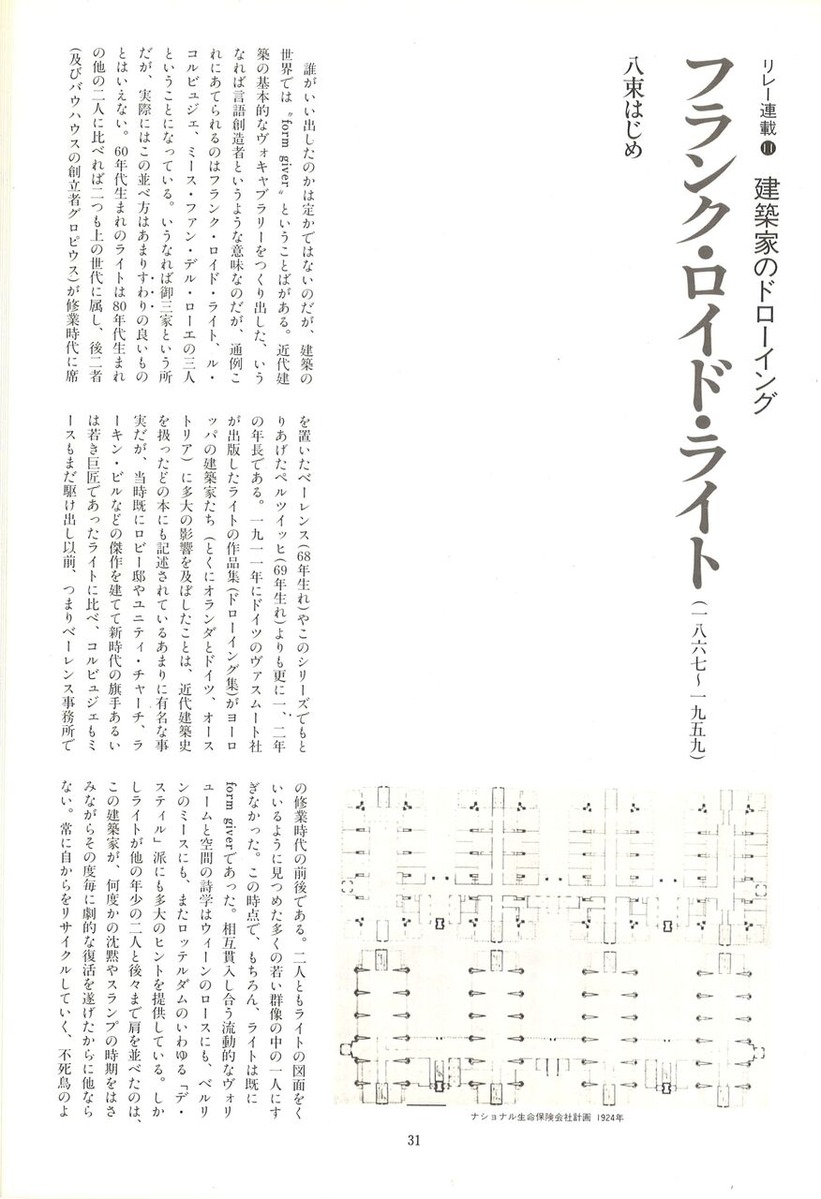 リレー連載⓫ 建築家のドローイング
フランク・ロイド・ライト(一八六七〜一九五九)
八束はじめ
誰がいい出したのかは定かではないのだが、建築の
世界では〝form giver〟ということばがある。近代建
築の基本的なヴォキャブラリーをつくり出した、いう
なれば言語創造者というような意味なのだが、通例こ
れにあてられるのはフランク・ロイド・ライト、ル・
コルビュジェ、ミース・ファン・デル・ローエの三人
ということになっている。いうなれば御三家という所
だが、実際にはこの並べ方はあまりすわりの良いもの
とはいえない。60年代生まれのライトは80年代生まれ
の他の二人に比べれば二つも上の世代に属し、後二者
(及びバウハウスの創立者グロピウス)が修業時代に席
を置いたベーレンス(68年生れ)やこのシリーズでもと
りあげたペルツイッヒ(69年生れ)よりも更に一、二年
の年長である。一九一一年にドイツのヴァスムート社
が出版したライトの作品集(ドローイング集)がヨーロ
ッパの建築家たち(とくにオランダとドイツ、オース
トリア)に多大の影響を及ぼしたことは、近代建築史
を扱ったどの本にも記述されているあまりに有名な事
実だが、当時既にロビー邸やユニティ・チャーチ、ラ
ーキン・ビルなどの傑作を建てて新時代の旗手あるい
は若き巨匠であったライトに比べ、コルビュジェもミ
ースもまだ駆け出し以前、つまりベーレンス事務所で
の修業時代の前後である。二人ともライトの図面をく
いいるように見つめた多くの若い群像の中の一人にす
ぎなかった。この時点で、もちろん、ライトは既に
form giverであった。相互貫入し合う流動的なヴォリ
ュームと空間の詩学はウィーンのロースにも、ベルリ
ンのミースにも、またロッテルダムのいわゆる「デ・
スティル」派にも多大のヒントを提供している。しか
しライトが他の年少の二人と後々まで肩を並べたのは、
この建築家が、何度かの沈黙やスランプの時期をはさ
みながらその度毎に劇的な復活を遂げたからに他なら
ない。常に自からをリサイクルしていく、不死鳥のよ
ナショナル生命保険会社計画 1924年
31